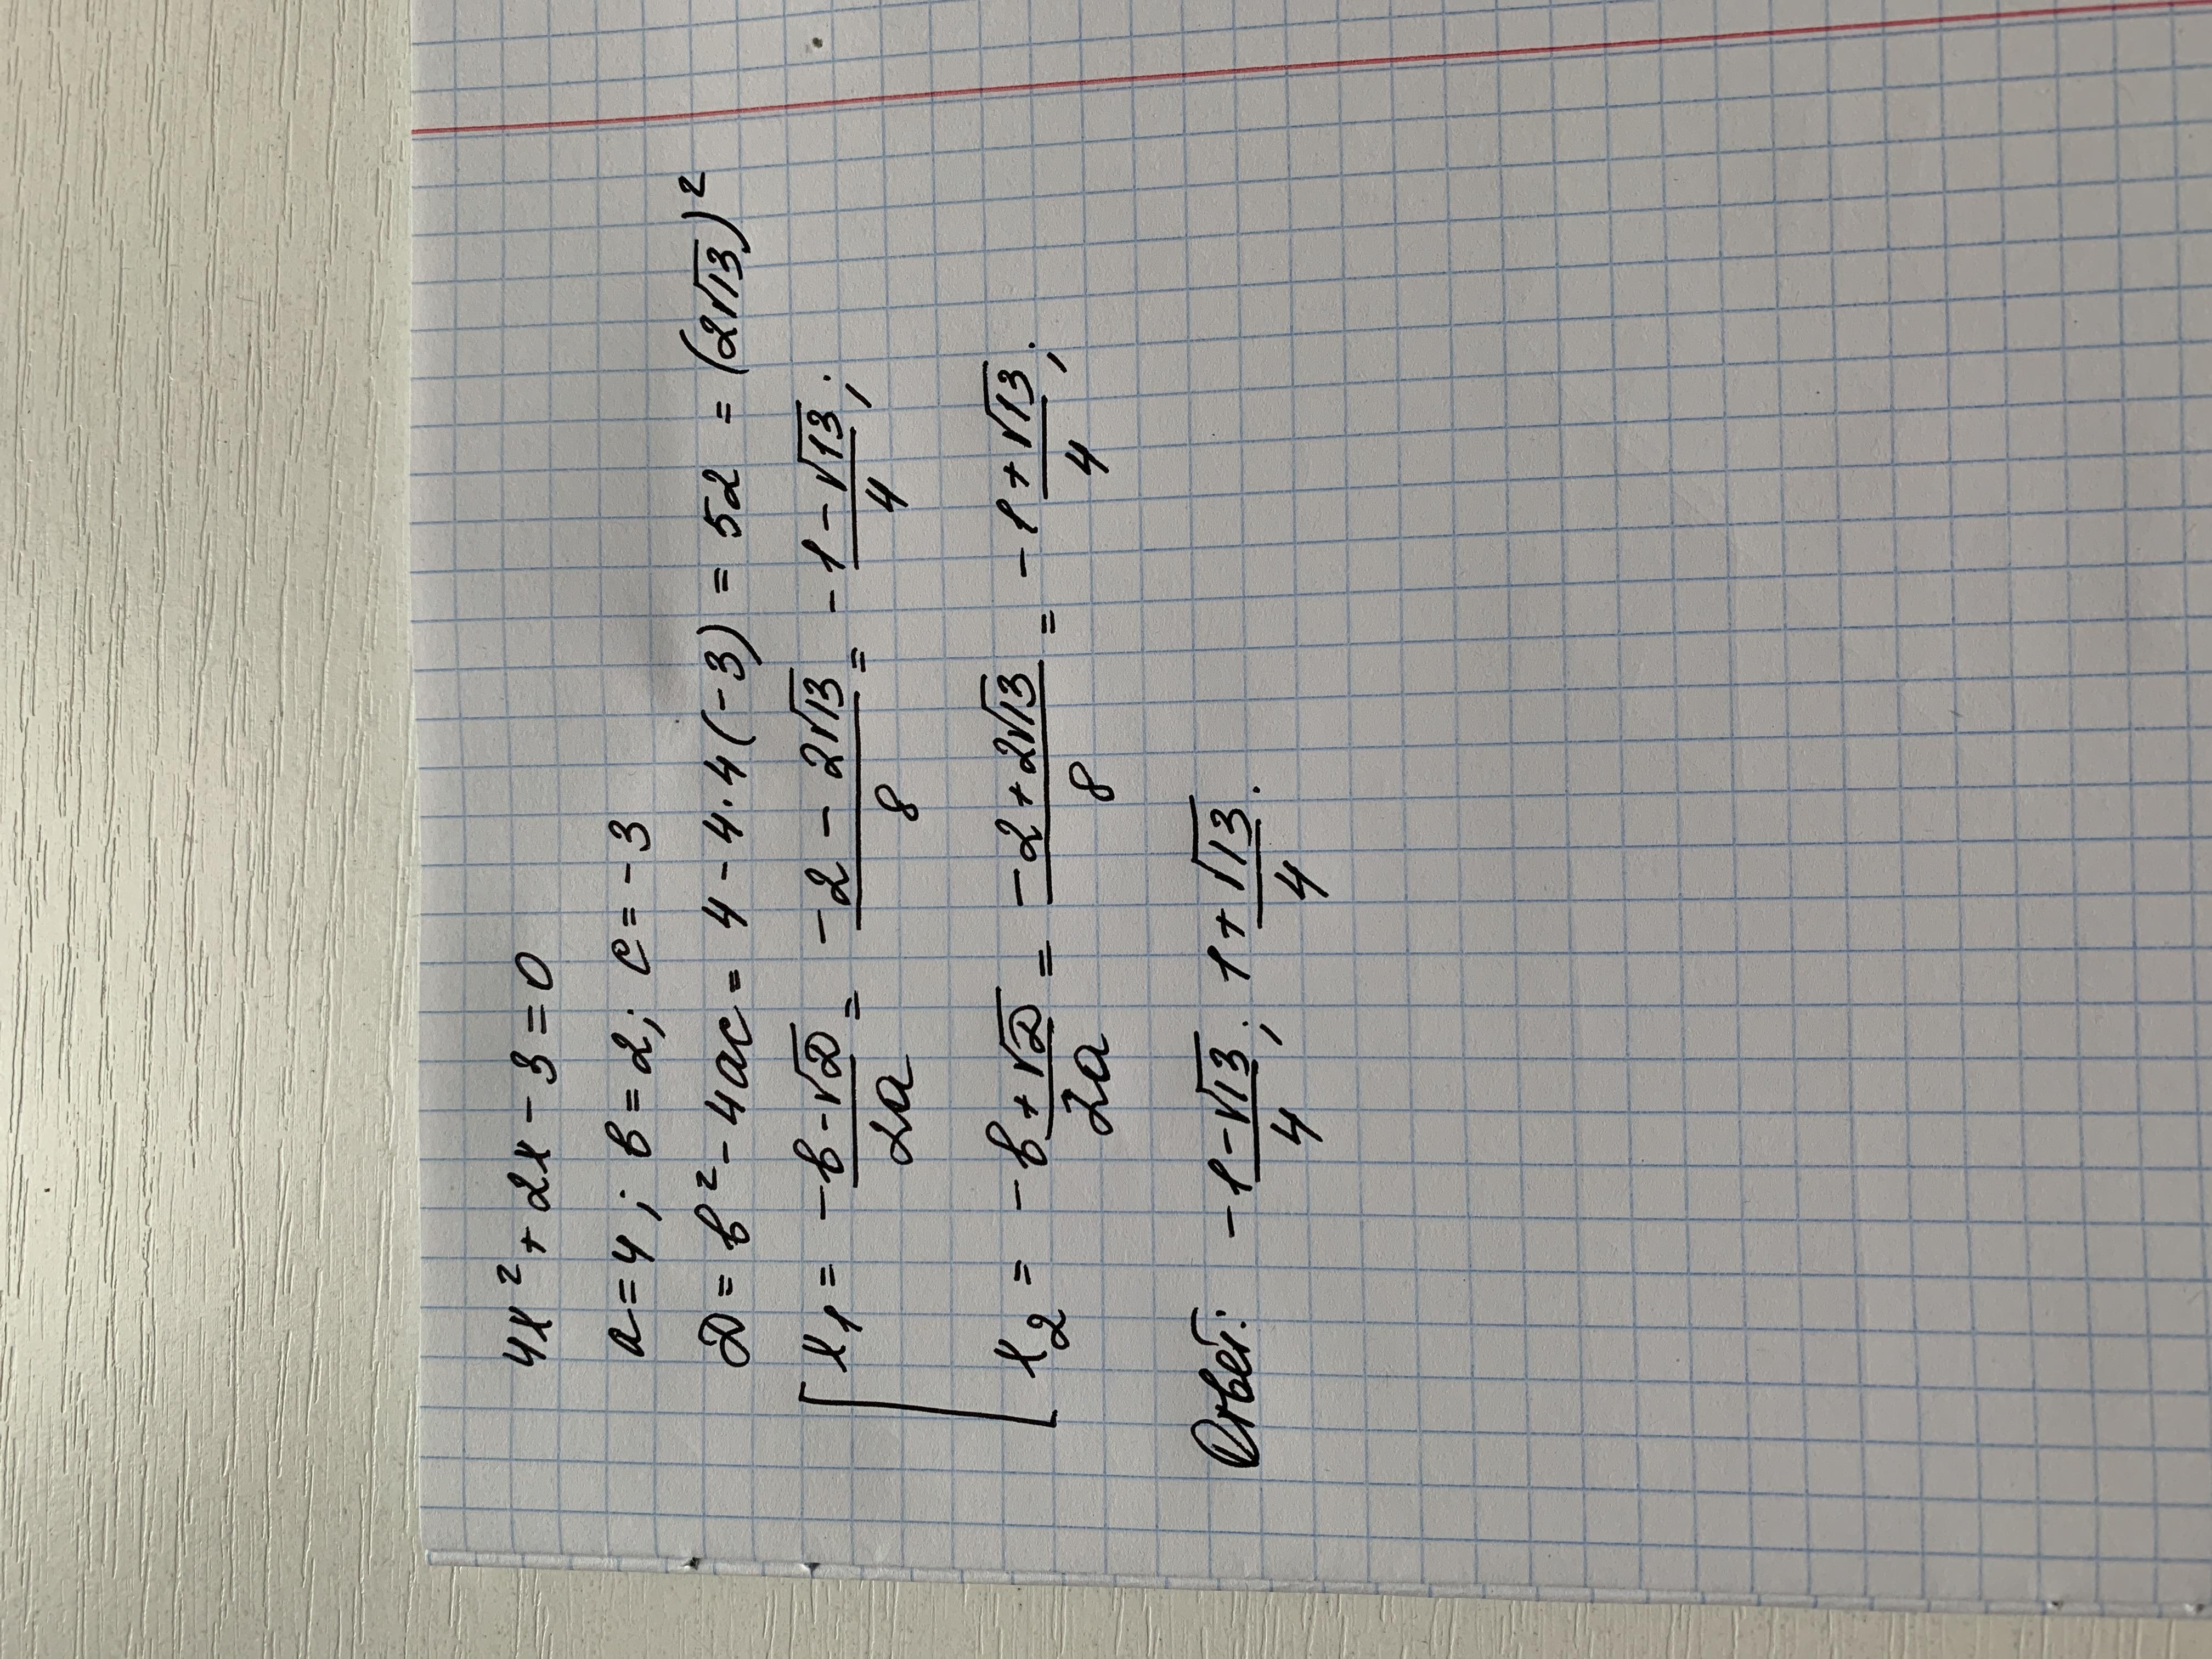 4x² + 2x - 3 = 0
a = 4; b = 2; c = -3
D = b² - 4ac = 4 - 4·4(-3) = 52 = (2√13)²
[ x₁ = (-b-√D)/2a = (-2 - 2√13)/8 = (-1-√13)/4;
x₂ = (-b+√D)/2a = (-2+2√13)/8 = (-1+√13)/4;
Ответ: (-1-√13)/4; (1+√13)/4.